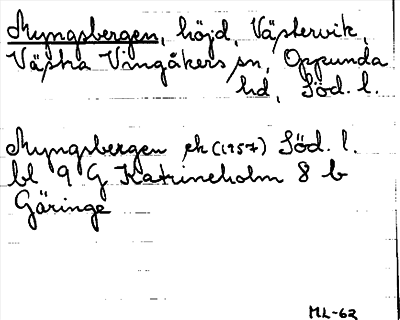 Myngsbergen, höjd, Västervik,
Västra Vingåkers sn, Oppunda
hd, Söd. l.
Myngsbergen ek (1957) Söd. l.
bl 9 G Katrineholm 8 b
Göringe
ML-62